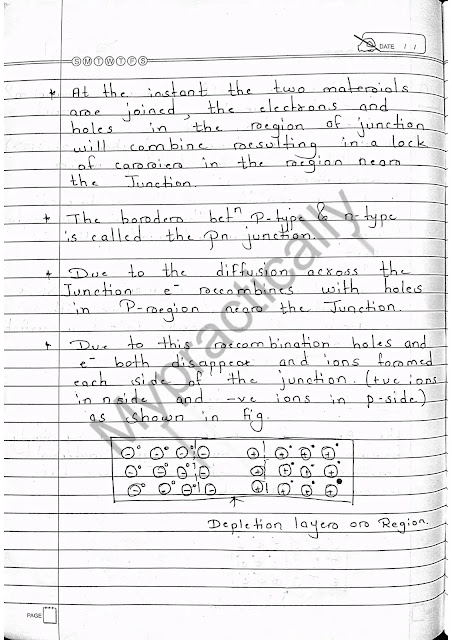 DATE / /
S M T W T F S
* At the instant the two materials
are joined, the electrons and
holes in the region of junction
will combine resulting in a lack
of carrier in the region near
the Junction.
* The border betn P-type & n-type
is called the pn junction.
* Due to the diffusion across the
Junction e- recombines with holes
in P-region near the Junction.
* Due to this recombination holes and
e- both disappear and ions formed
each side of the junction. (+ve ions
in n side and -ve ions in p-side)
as shown in fig.
Depletion layer or Region.
PAGE
Mypractically